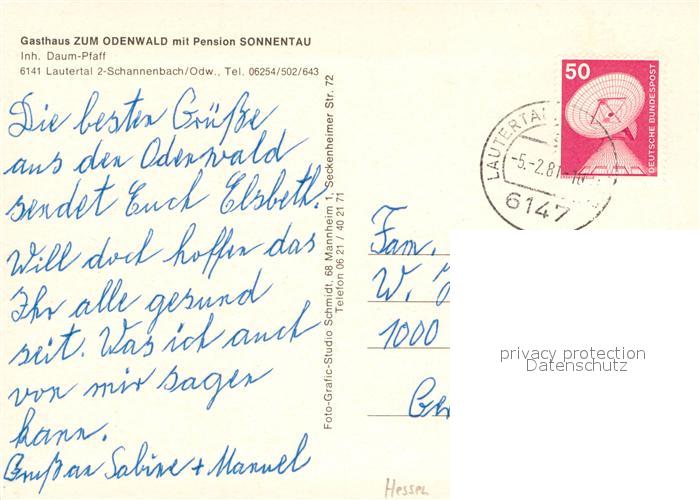 Gasthaus ZUM ODENWALD mit Pension SONNENTAU
Inh. Daum-Pfaff
6141 Lautertal 2-Schannenbach/Odw., Tel. 06254/502/643
Die besten Grüße
aus den Odenwald
sendet Euch Elsbeth.
Will doch hoffen das
Ihr alle gesund
seit. Was ich auch
von mir sagen
kann.
Gruß an Sabine + Manuel
Foto-Grafic-Studio Schmidt, 68 Mannheim 1, Seckenheimer Str. 72
Telefon 06 21 / 40 21 71
50
DEUTSCHE BUNDESPOST
LAUTERTA
-5.-2.81-16
6147
Fam.
W.
1000
Ber
privacy protection
Datenschutz
Hessen